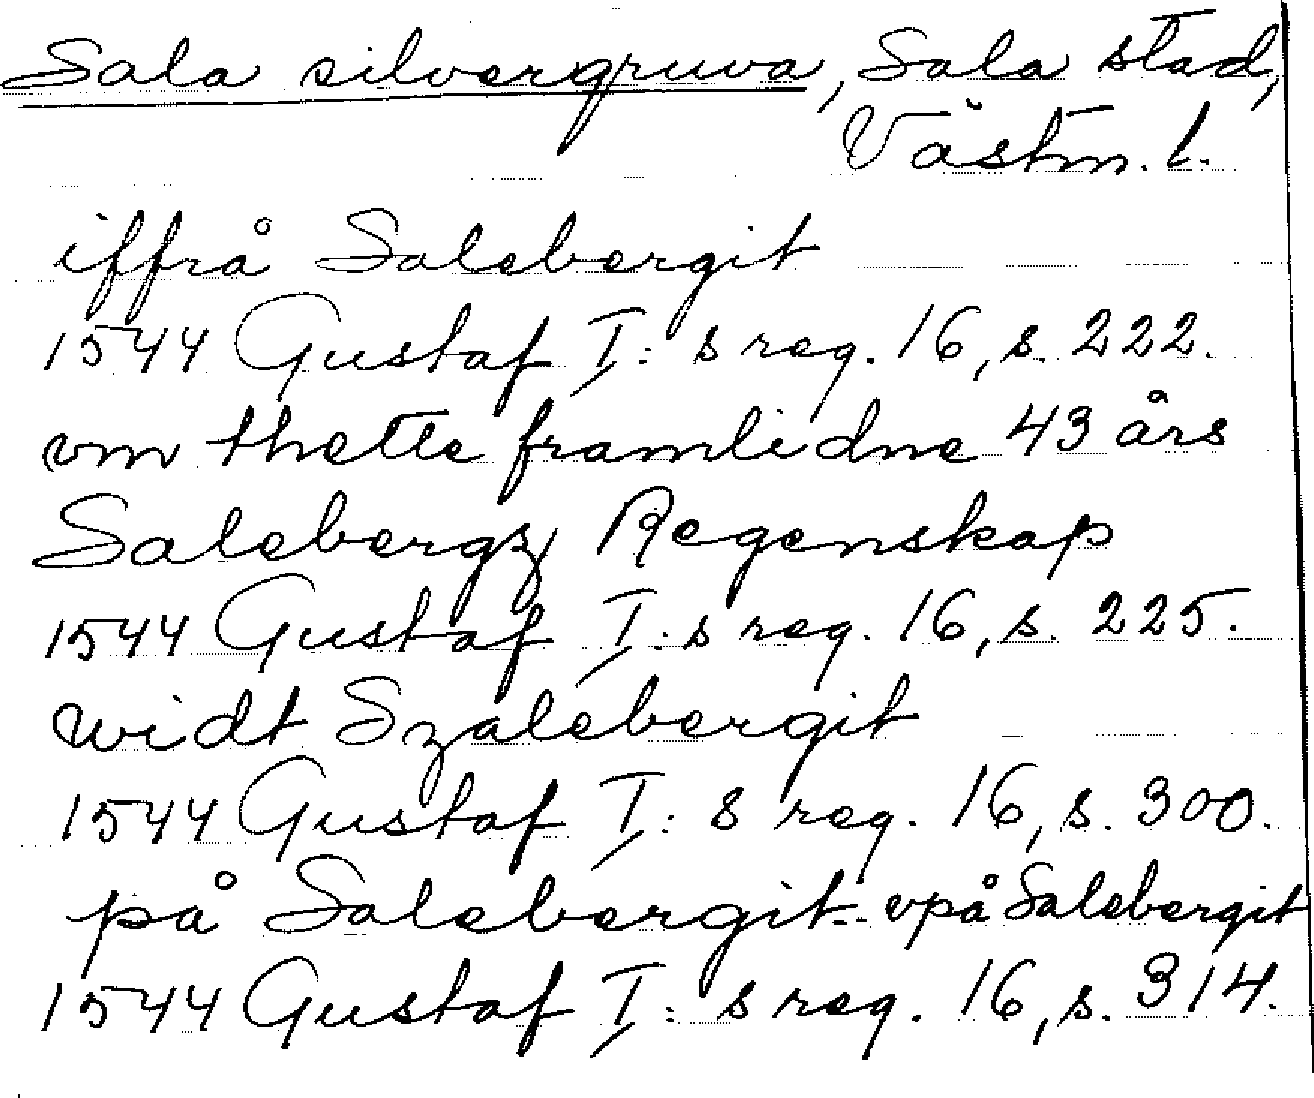 Sala silvergruva, Sala stad,
Västm. l.
iffrå Salebergit
1544 Gustaf I: s reg. 16, s. 222.
vm thette framlidne 43 års
Salebergz Regenskap
1544 Gustaf I: s reg. 16, s. 225.
widt Szalebergit
1544 Gustaf I: s reg. 16, s. 300.
på Salebergit - vpå Salebergit
1544 Gustaf I: s reg. 16, s. 314.